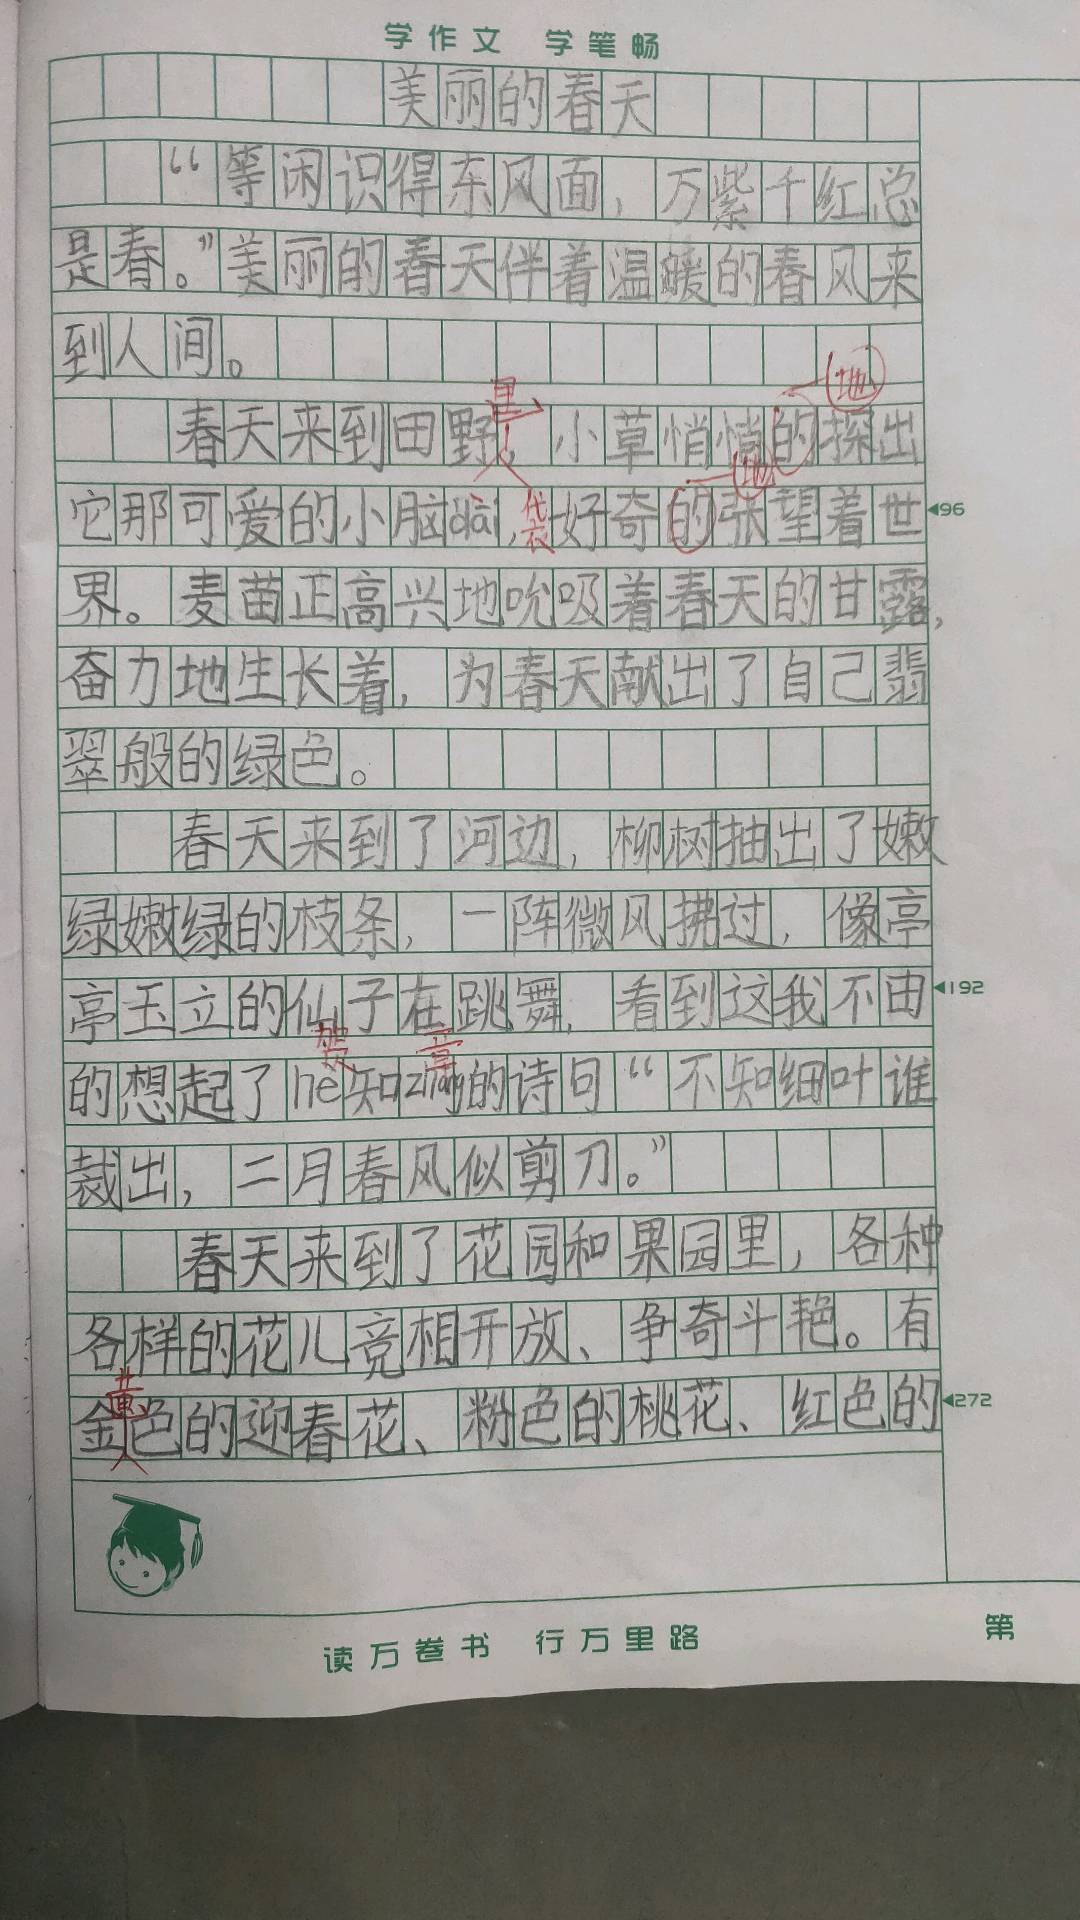 学作文 学笔畅
美丽的春天
“等闲识得东风面，万紫千红总
是春。”美丽的春天伴着温暖的春风来
到人间。
地
里，
春天来到田野，小草悄悄的探出
地
它那可爱的小脑dài，袋好奇的张望着世
96
界。麦苗正高兴地吮吸着春天的甘露，
奋力地生长着，为春天献出了自己翡
翠般的绿色。
春天来到了河边，柳树抽出了嫩
绿嫩绿的枝条，一阵微风拂过，像亭
亭玉立的仙子在跳舞，看到这我不由
192
贺 章
的想起了he知zhang的诗句“不知细叶谁
裁出，二月春风似剪刀。”
春天来到了花园和果园里，各种
各样的花儿竞相开放、争奇斗艳。有
黄
金色的迎春花、粉色的桃花、红色的
272
读万卷书 行万里路
第